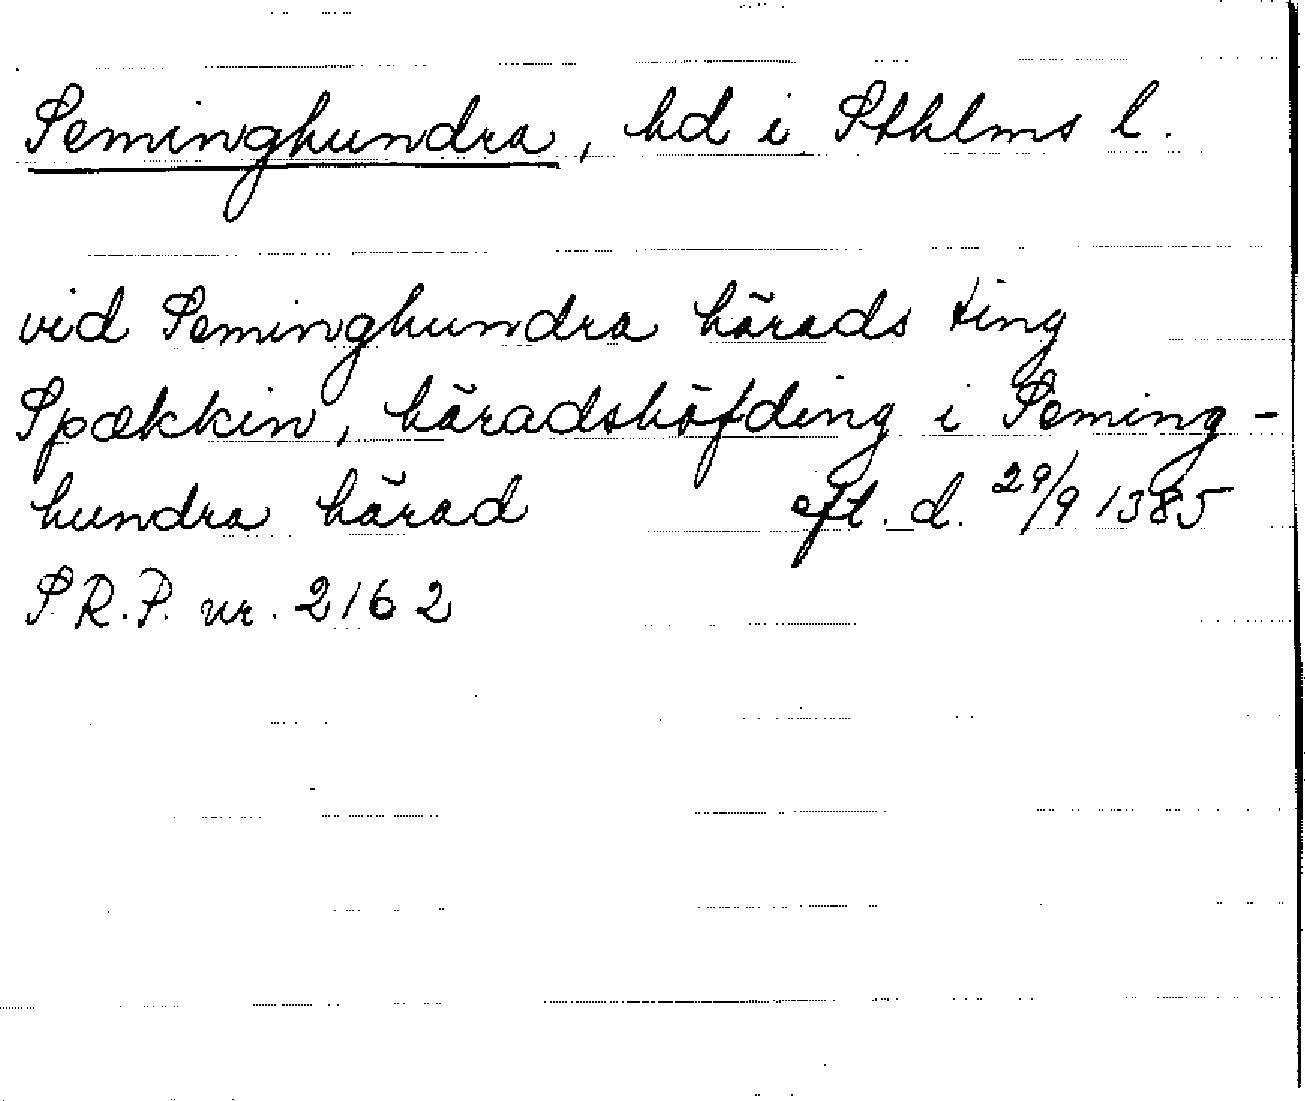 Seminghundra, hd i Sthlms l.
vid Seminghundra härads ting
Spækkin, häradshöfding i Seming-
hundra härad eft. d. 29/9 1385
S R.P. nr. 2162